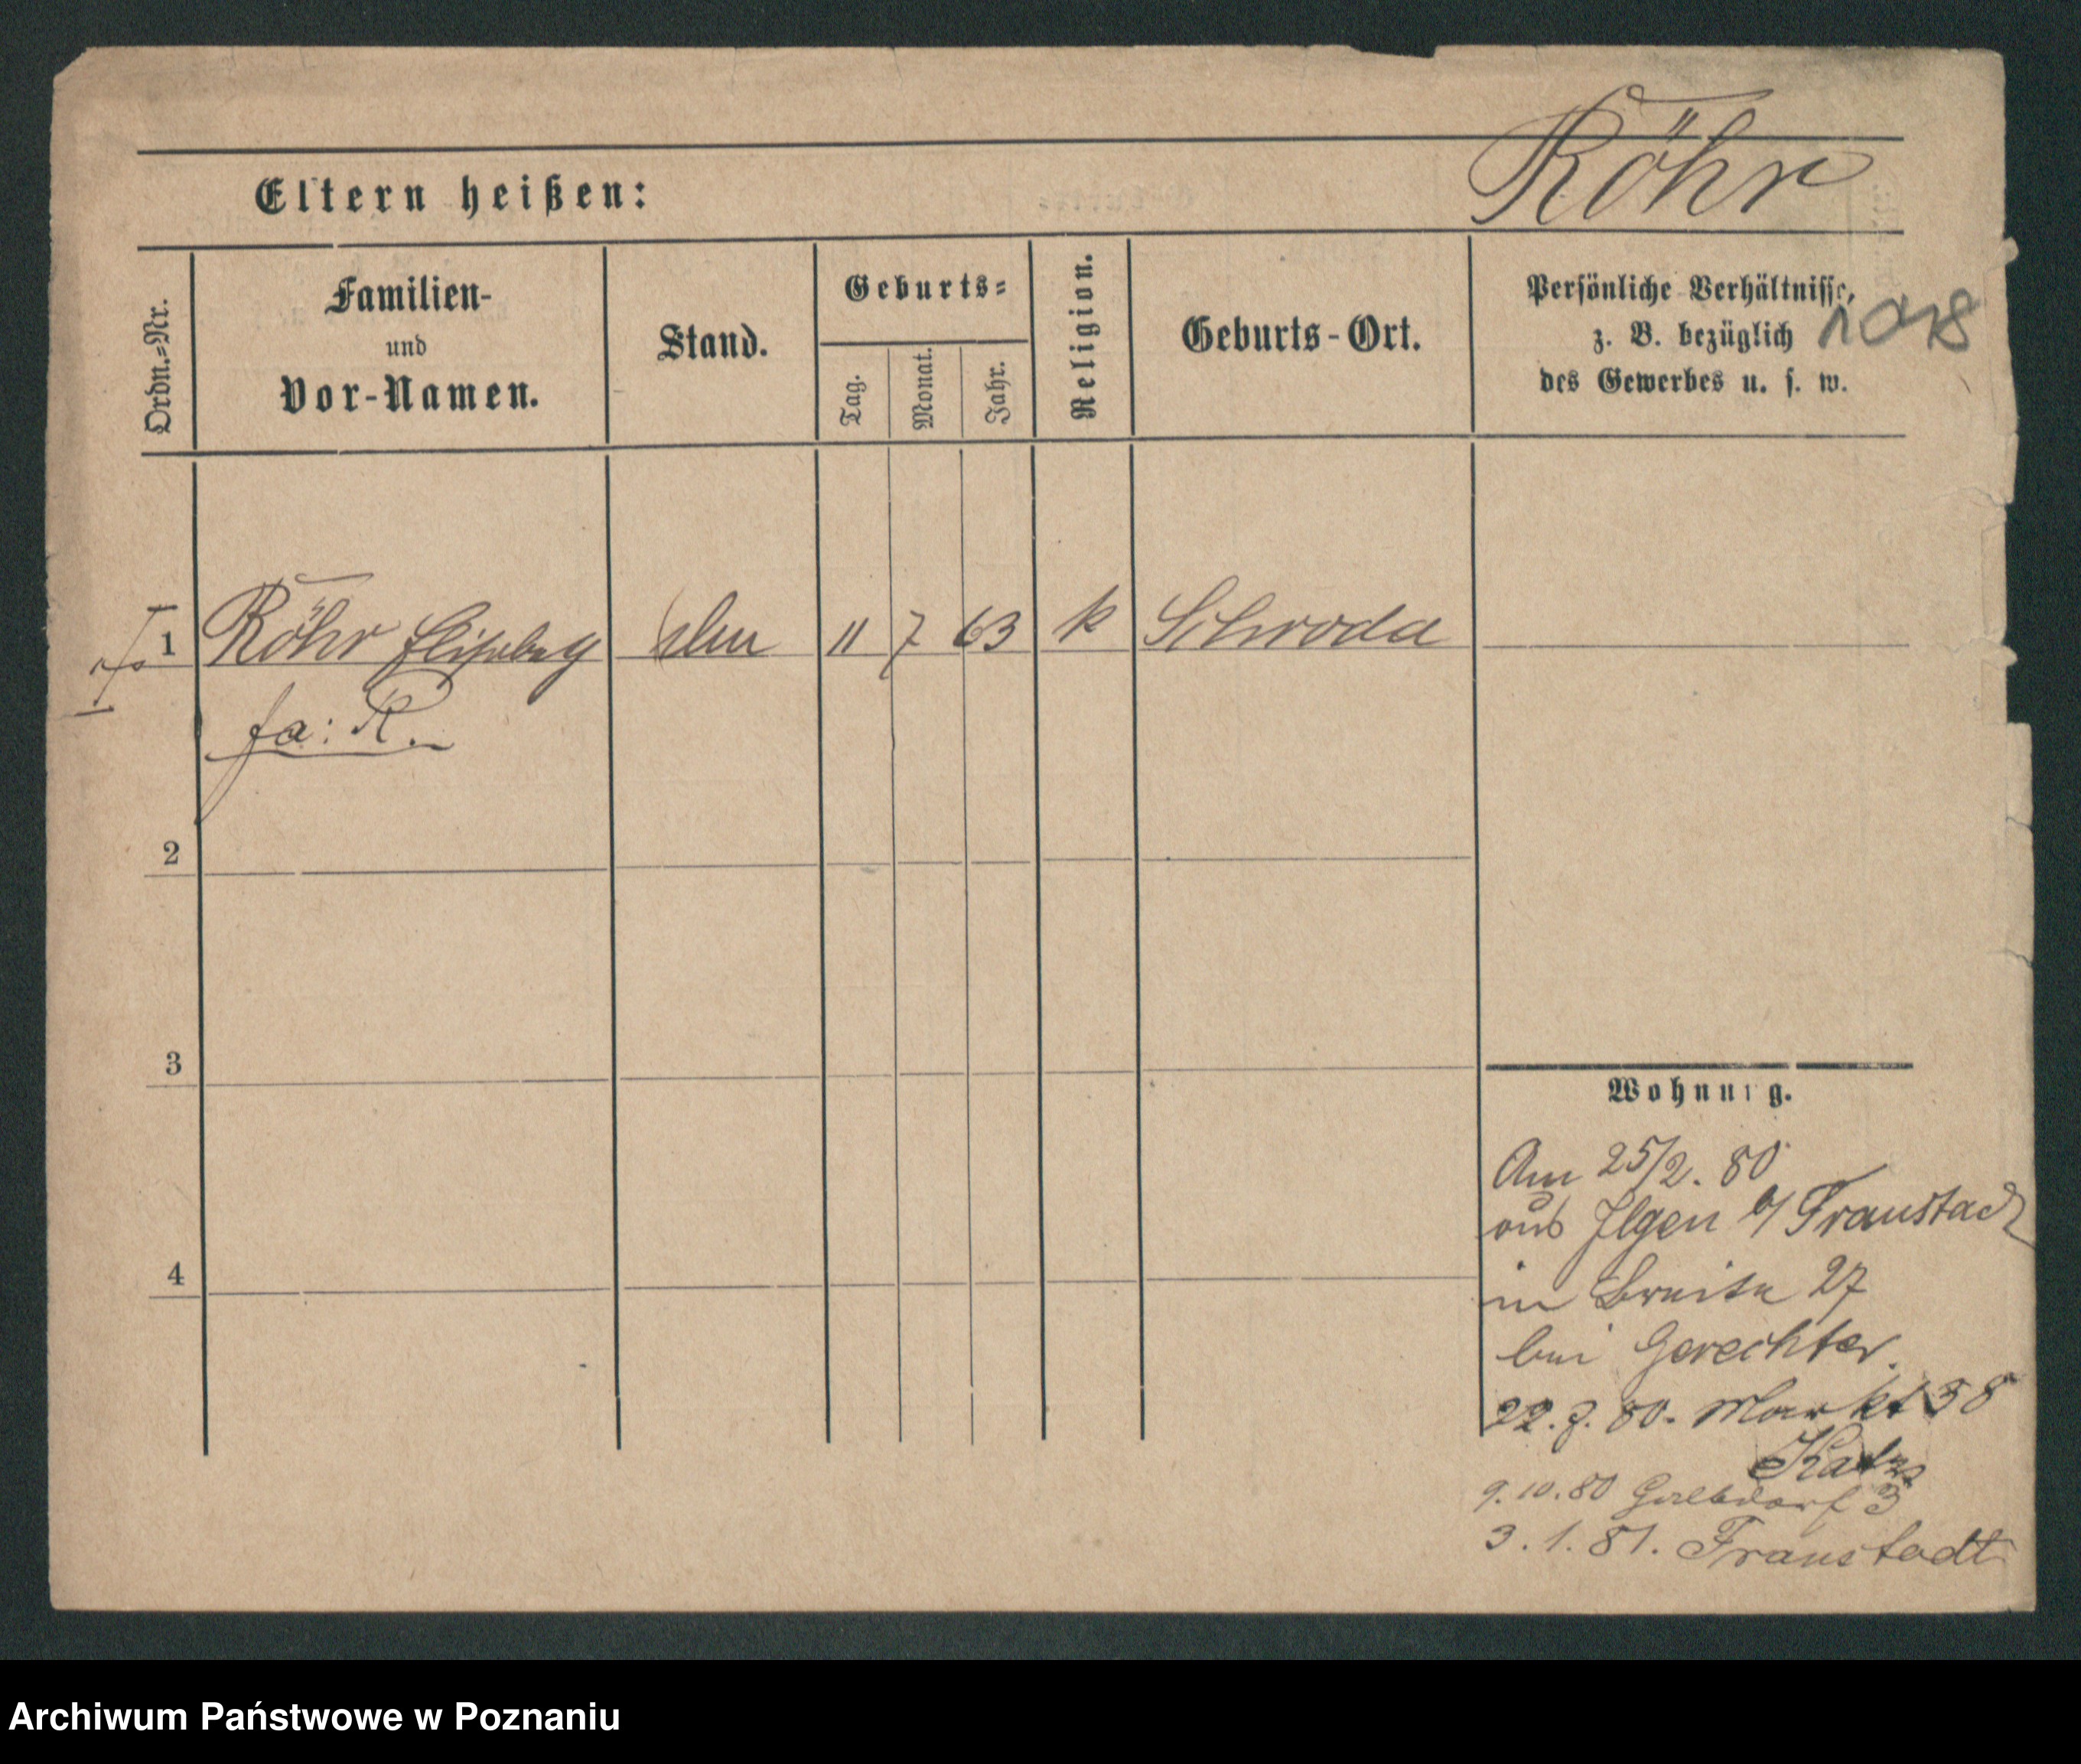 Röhr
Eltern heißen:
Ordn.=Nr.
Familien-
und
Vor-Namen.
Stand.
Geburts=
Tag.
Monat.
Jahr.
Religion.
Geburts-Ort.
Persönliche Verhältnisse,
z. B. bezüglich
des Gewerbes u. s. w.
1 Röhr 11 7 63 k Schroda
fa: R.
2
3
4
Wohnung.
Am 25/2. 80
aus Ilgen b/ Fraustadt
in Breite 27
bei Gerechter
22. 7. 80. Markt 38
Katz
9. 10. 80 3
3. 1. 81. Fraustadt
Archiwum Państwowe w Poznaniu